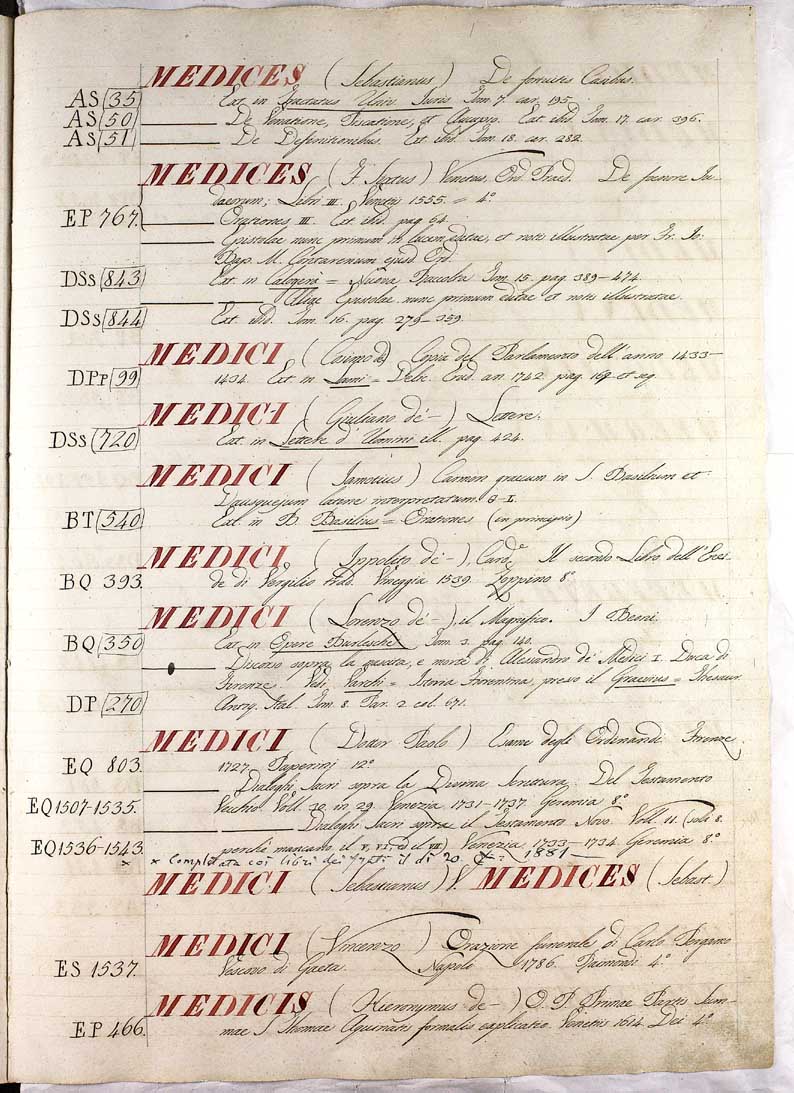 MEDICES (Sebastianus) De fortuitis Casibus.
AS 35 Ext. in Tractatus Univ. Juris Tom. 7. car. 195.
AS 50 De Venatione, Piscatione, et Aucupio. Ext. ibid. Tom. 17. car. 396.
AS 51 De Definitionibus. Ext. ibid. Tom. 18. car. 282.
MEDICES (F. Sixtus) Venetus, Ord. Praed. De foenore Ju-
daeorum; Libri III. Venetiis 1555. = 4°.
EP 767. Orationes III. Ext. ibid. pag. 64.
Epistolae nunc primum in lucem editae, et notis illustratae per Fr. Jo.
Bap. M. Contarenum ejusd. Ord.
DSs 843 Ext. in Calogerà = Nuova Raccolta Tom. 15. pag. 389-474.
Aliae Epistolae nunc primum editae et notis illustratae.
DSs 844 Ext. ibid. Tom. 16. pag. 279-359.
MEDICI (Cosimo de') Copia del Parlamento dell' anno 1433-
DPp 99 1434. Ext. in Lami = Delic. Erud. an. 1742. pag. 169 et seq.
MEDICI (Giuliano de'-) Lettere.
DSs 720 Ext. in Lettere d' Uomini ill. pag. 424.
MEDICI (Jamotius) Carmen graecum in S. Basilium et
Dausquejum latine interpretatum. G-L.
BT 540 Ext. in D. Basilius = Orationes (in principio)
MEDICI (Ippolito de'-), Card.e Il secondo Libro dell' Enei-
BQ 393. de di Vergilio trad. Vineggia 1539. Zoppino 8°
MEDICI (Lorenzo de'-), il Magnifico. I Beoni.
BQ 350 Ext. in Opere Burlesche Tom. 3. pag. 140.
Discorso sopra la nascita, e morte di Alessandro de' Medici I. Duca di
Firenze. Vedi Varchi = Istoria Fiorentina, presso il Graevius = Thesaur.
DP 270 Antiq. Ital. Tom. 8. Par. 2. col. 671.
MEDICI (Dottor Paolo) Esame degli Ordinandi. Firenze
EQ 803. 1727. Paperini 12°
Dialoghi Sacri sopra la Divina Scrittura. Del Testamento
EQ 1507-1535. Vecchio Voll. 30. in 29. Venezia 1731-1737. Geremia 8°
Dialoghi Sacri sopra il Testamento Novo. Voll. 11. (soli 8.
EQ 1536-1543. perchè mancano il Venezia 1733-1734. Geremia 8°
x x Completata coi libri dei il di 20. 1881
MEDICI (Sebastianus) V. MEDICES (Sebast.)
MEDICI (Vincenzo) Orazione funerale di Carlo Pergamo
ES 1537. Vescovo di Gaeta. Napoli 1786. Raimondi 4°
MEDICIS (Hieronymus de-) O. P. Primae Partis Sum-
EP 466. mae S. Thomae Aquinatis formalis explicatio. Venetiis 1614. Dei 4°